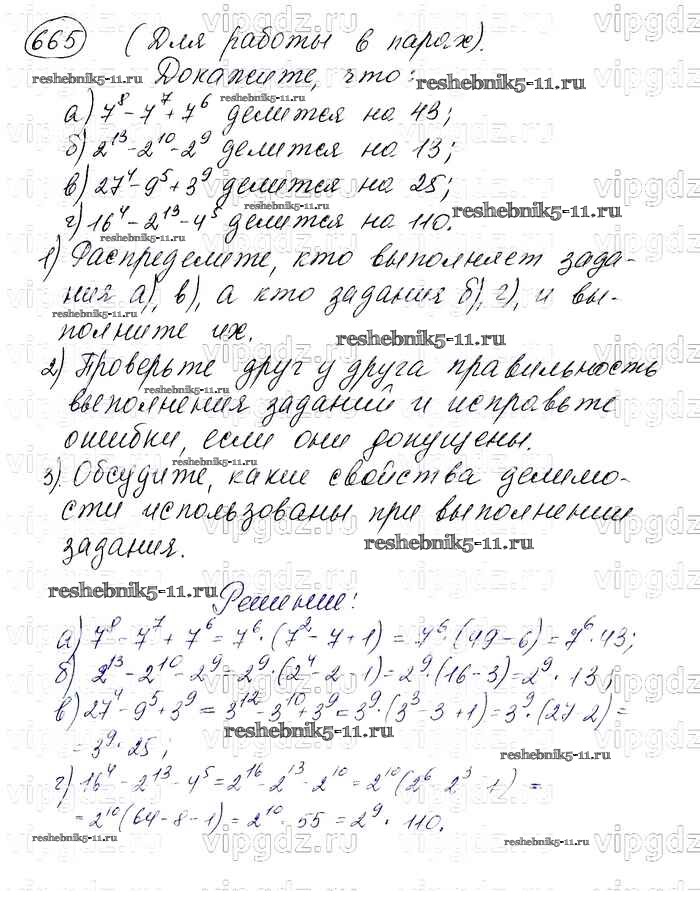 665 (Для работы в парах).
Докажите, что:
а) 7⁸ - 7⁷ + 7⁶ делится на 43;
б) 2¹³ - 2¹⁰ - 2⁹ делится на 13;
в) 27⁴ - 9⁵ + 3⁹ делится на 25;
г) 16⁴ - 2¹³ - 4⁵ делится на 110.
1) Распределите, кто выполняет зада-
ния а), в), а кто задания б), г), и вы-
полните их.
2) Проверьте друг у друга правильность
выполнения заданий и исправьте
ошибки, если они допущены.
3) Обсудите, какие свойства делимо-
сти использованы при выполнении
задания.
Решение:
а) 7⁸ - 7⁷ + 7⁶ = 7⁶ · (7² - 7 + 1) = 7⁶ · (49 - 6) = 7⁶ · 43;
б) 2¹³ - 2¹⁰ - 2⁹ = 2⁹ · (2⁴ - 2 - 1) = 2⁹ · (16 - 3) = 2⁹ · 13;
в) 27⁴ - 9⁵ + 3⁹ = 3¹² - 3¹⁰ + 3⁹ = 3⁹ · (3³ - 3 + 1) = 3⁹ · (27 - 2) =
= 3⁹ · 25;
г) 16⁴ - 2¹³ - 4⁵ = 2¹⁶ - 2¹³ - 2¹⁰ = 2¹⁰ (2⁶ - 2³ - 1) =
= 2¹⁰ (64 - 8 - 1) = 2¹⁰ · 55 = 2⁹ · 110.
reshebnik5-11.ru
vipgdz.ru